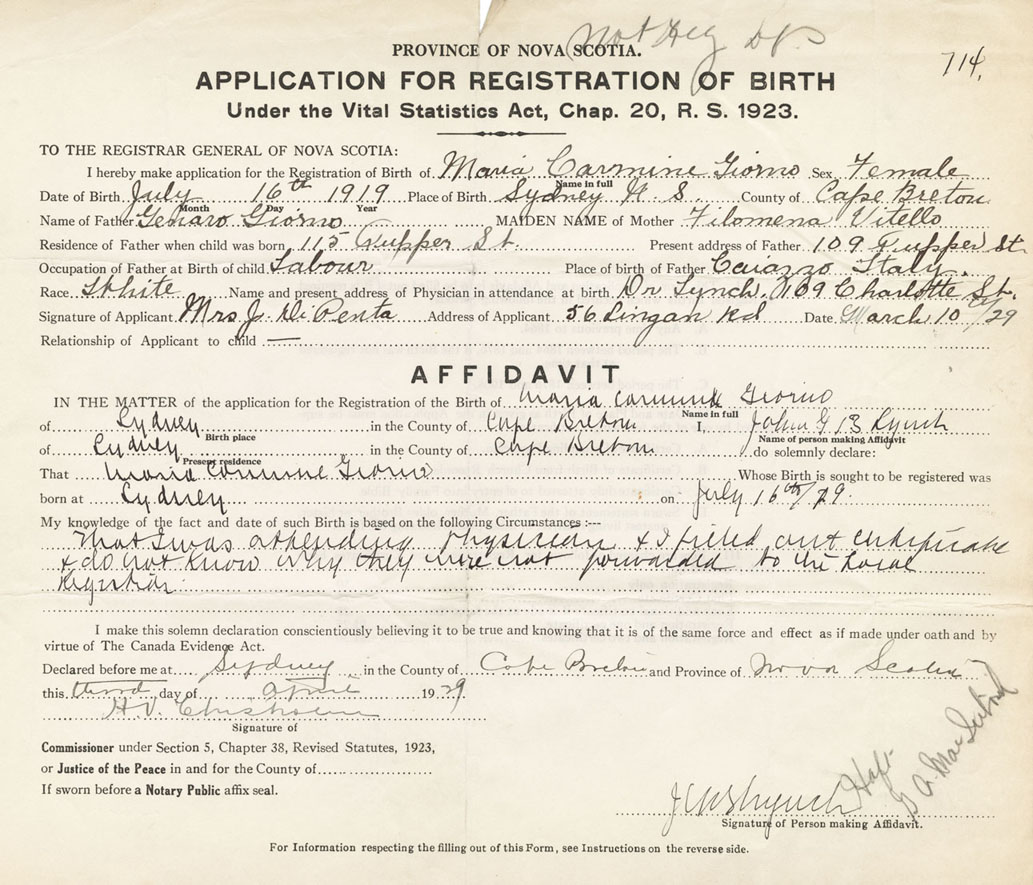 Not Reg
PROVINCE OF NOVA SCOTIA.
714,
APPLICATION FOR REGISTRATION OF BIRTH
Under the Vital Statistics Act, Chap. 20, R. S. 1923.
TO THE REGISTRAR GENERAL OF NOVA SCOTIA:
I hereby make application for the Registration of Birth of Maria Carmine Giorno Sex Female
Name in full
Date of Birth July 16th 1919 Place of Birth Sydney N. S. County of Cape Breton
Month Day Year
Name of Father Genaro Giorno MAIDEN NAME of Mother Filomena Vitello
Residence of Father when child was born 115 Tupper St. Present address of Father 109 Tupper St.
Occupation of Father at Birth of child Labour Place of birth of Father Caiazzo Italy.
Race White Name and present address of Physician in attendance at birth Dr Lynch, 109 Charlotte St.
Signature of Applicant Mrs J. Di Penta Address of Applicant 56 Lingan Rd Date March 10/29
Relationship of Applicant to child —
AFFIDAVIT
IN THE MATTER of the application for the Registration of the Birth of Maria Carmine Giorno
Name in full
of Sydney in the County of Cape Breton I, John G B Lynch
Birth place Name of person making Affidavit
of Sydney in the County of Cape Breton do solemnly declare:
Present residence
That Maria Carmine Giorno Whose Birth is sought to be registered was
born at Sydney on July 16th/19.
My knowledge of the fact and date of such Birth is based on the following Circumstances :---
That I was attending physician & I filled out certificate
& do not know why they were not forwarded to the Local
Registrar.
I make this solemn declaration conscientiously believing it to be true and knowing that it is of the same force and effect as if made under oath and by
virtue of The Canada Evidence Act.
Declared before me at Sydney in the County of Cape Breton and Province of Nova Scotia
this third day of April 1929
Chisholm
Signature of
Commissioner under Section 5, Chapter 38, Revised Statutes, 1923,
or Justice of the Peace in and for the County of
If sworn before a Notary Public affix seal.
Lynch
Signature of Person making Affidavit.
For Information respecting the filling out of this Form, see Instructions on the reverse side.